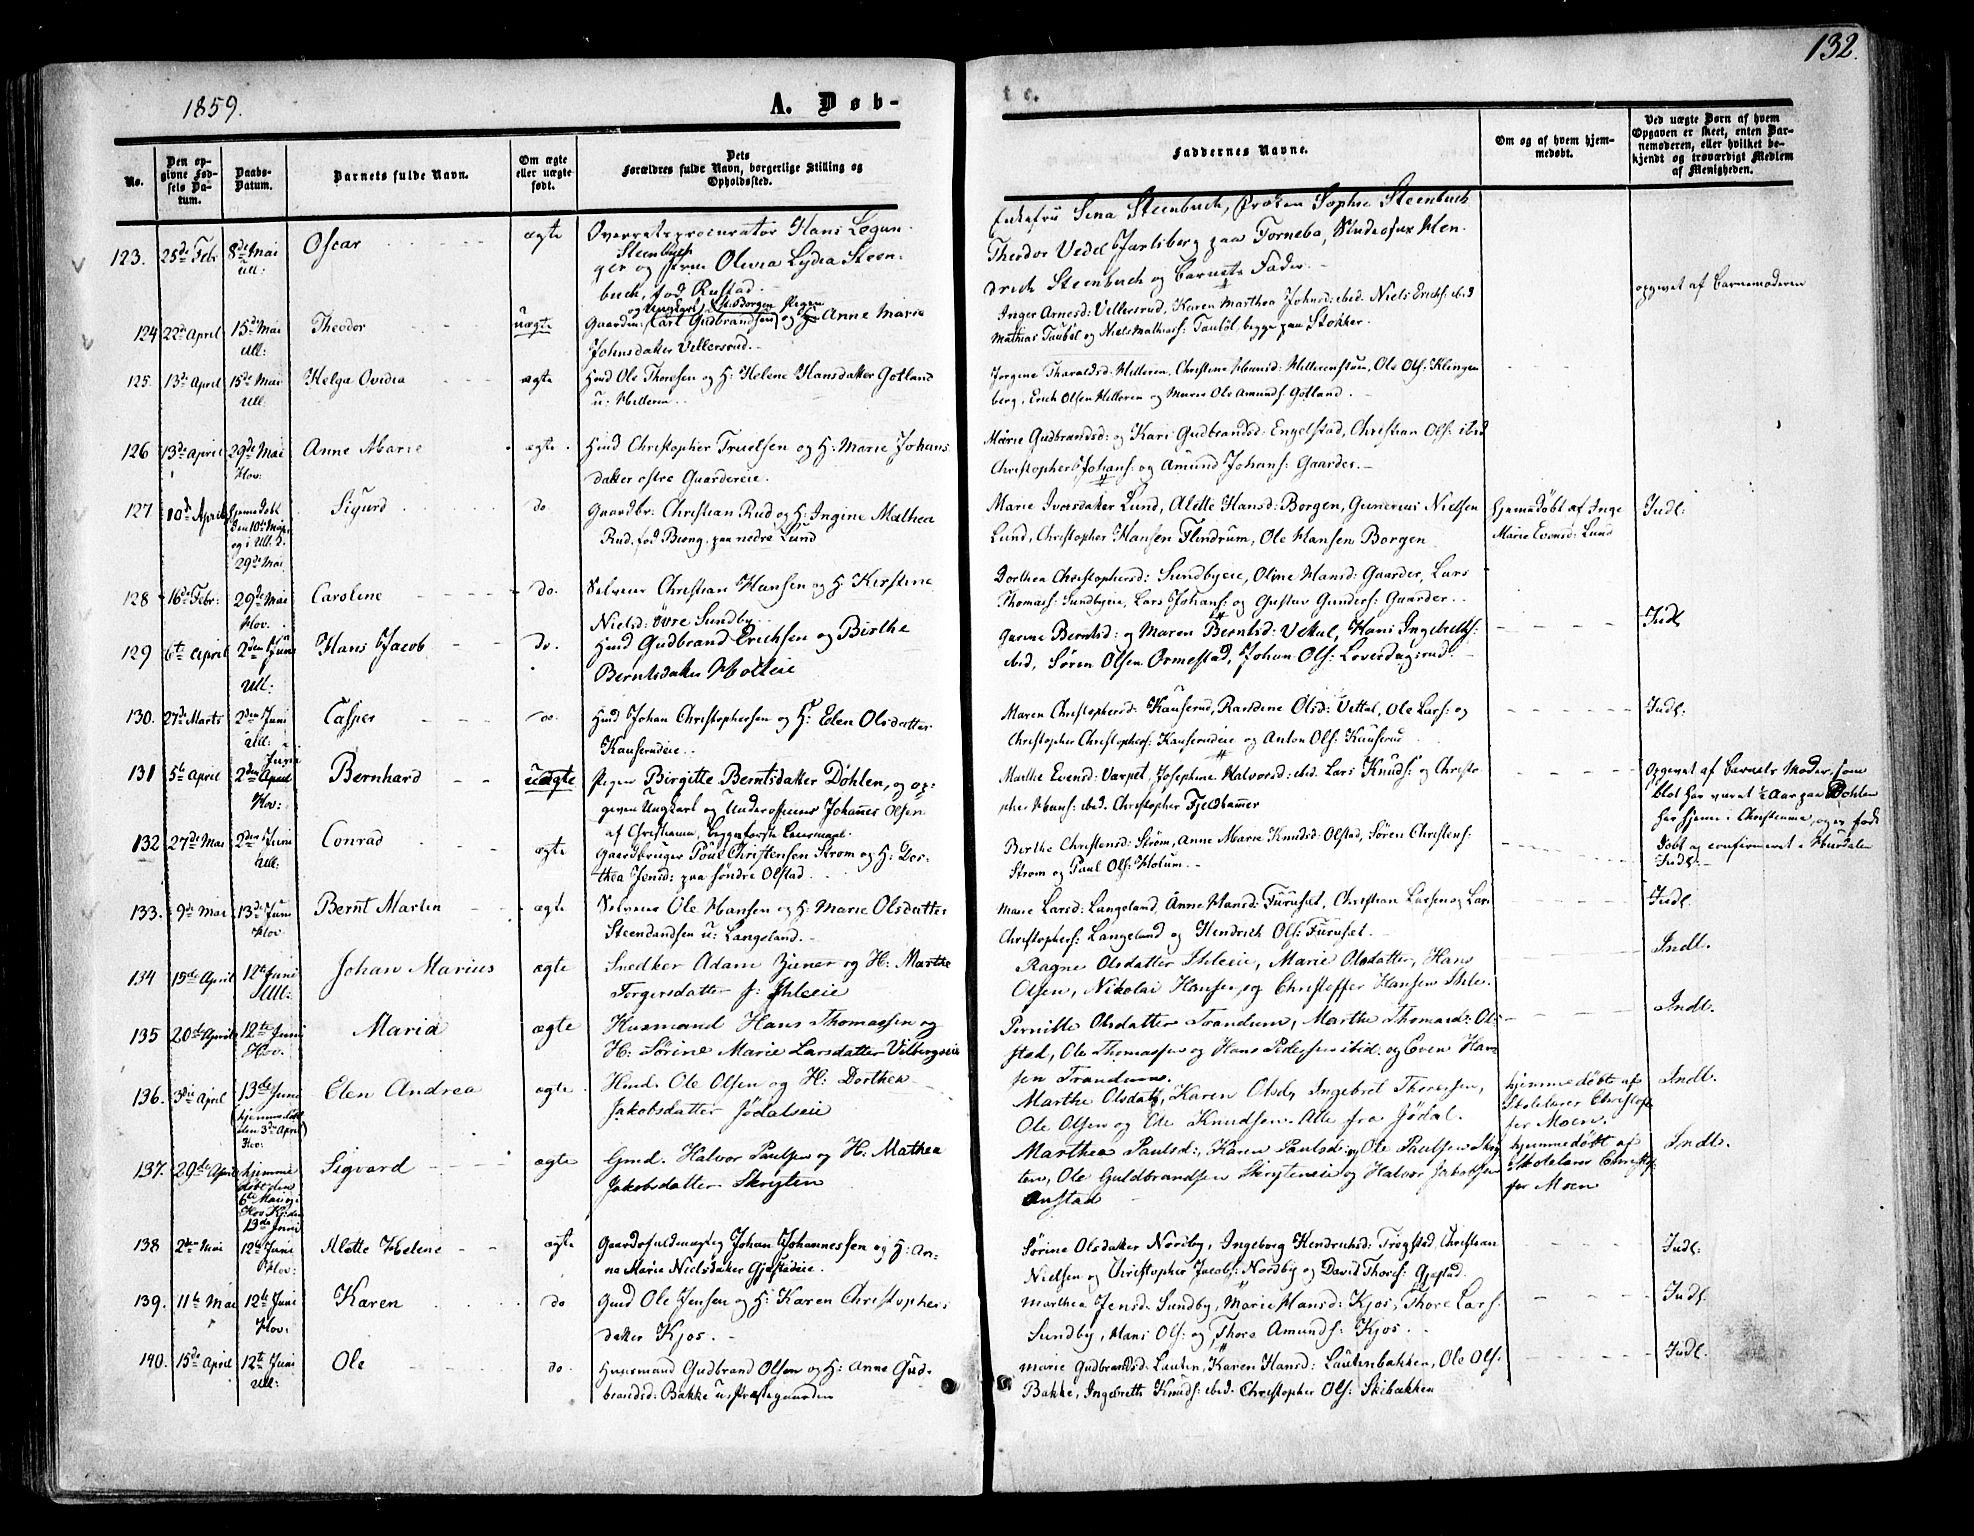 132.
1859.
A. Døb-
te.
No.
Den op-
givne Fød-
sels Da-
tum.
Daabs-
Datum.
Barnets fulde Navn.
Om ægte
eller uægte
født.
Dets
Forældres fulde Navn, borgerlige Stilling og
Opholdssted.
Faddernes Navne.
Om og af hvem hjem-
medøbt.
Ved uægte Børn af hvem
Opgaven er skeet, enten Bar-
nemoderen, eller hvilket be-
kjendt og troværdigt Medlem
af Menigheden.
123. 25de Febr 8de Mai Ull: Oscar ægte
Overretsprocurator Hans
Steenbuch
og Olivia Lydia Steen-
buch, fød Rustad.
Enkefru Sina Steenbuch, Frøken Sophie Steenbuch
Theodor Vedel Jarlsberg paa Torneba, Hen-
drich Steenbuch og Barnets Fader.
124 22de April 15de Mai Ull: Theodor uægte
Ungkarl Borgen Pigen
Gaardm: Carl Gudbrandsen og Anne Marie
Johnsdatter Vellersrud.
Inger Arnesd: Vellersrud, Karen Marthea Johnsd: ibid. Niels Erichs: ibid
Mathias Taubøl og Niels Mathias: Taubøl, begge paa Stokker.
opgivet af Barnemoderen
125. 13de April 15de Mai Ull. Helga Ovidia ægte
Hmd Ole Thoresen og H: Helene Hansdatter Gotland
u. Melleren.
Jørgine Tharaldsd: Melleren, Christine Ole Ols: Klingen
berg, Erich Olsen Melleren og Ole Amunds: Gotland.
126 13de April 29de Mai Hov: Anne Marie ægte.
Hmd Christopher Truelsen og H: Marie Johans
datter østre Gaardereie.
Marie Gudbrandsd: og Kari Gudbrandsd: Engelstad, Christian Ols: ibid
Christopher Johans: og Amund Johans: Gaarder.
127 10de April Hjemmedøbt den 10de Mai og i Ull: K. 29de Mai Sigurd do.
Gaardbr. Christian Rud og H: Ingine Mathea
Rud, fød Bieng. paa nedre Lund
Marie Iversdatter Lund, Alette Hansd: Borgen, Gunerius Nielsen
Lund, Christopher Hansen Flindrum, Ole Hansen Borgen
hjemmedøbt af Inge
Marie Evensd: Lund
Indl:
128 16de Febr: 29de Mai Hov. Caroline do.
Selveier Christian Hansen og H: Kirstine
Nielsd: Øvre Sundby.
Dorthea Christophersd: Sundbyeie, Oline Hansd: Gaarder, Lars
Thomass: Sundbyeie, Lars Johans: og Gustav Gunders: Gaarder.
129 6te April 2den Juni Ull: Hans Jacob do.
Hmd Gudbrand Erichsen og Birthe
Berntsdatter Holteie
Gurine Berntsd: og Maren Berntsd: Vekul, Hans Ingebreths:
ibid, Søren Olsen Ormestad, Johan Ols: Loverdagsrud.
Indl
130. 27de Marts 2den Juni Ull: Casper do.
Hmd Johan Christophersen og H: Elen Olsdatter
Kauserudeie.
Maren Christophersd: Kauserud, Olsd: Vettal, Ole Lars: og
Christopher Christophers: Kauserudeie og Anton Ols: Kauserud
Indl:
131 5te April 2den Juni Hov: Bernhard uægte
Pigen Birgitte Berntsdatter Døhlen, og op-
given Ungkarl og Underofficeer Johannes Olsen
af Christiania, begges første Leiermaal.
Marthe Evensd: Varpet, Josephine Halvorsd: ibid. Lars Knuds: og Christo
pher Hans: ibid. Christopher Fjeldhammer
Opgivet af Barnets Moder, som
blot har været ½ Aar paa Døhlen
har hjeme i Christiania, og er født
døbt og confirmeret i Hurdalen
Indl:
132 27de Mai 2den Juni Ull: Conrad ægte
Gaardbruger Poul Christensen Strøm og H: Dor-
thea Jensd: paa søndre Olstad.
Berthe Christensd: Strøm, Anne Marie Knudsd: Olstad, Søren Christens:
Strøm og Paul Ols: Holum.
133. 9de Mai 13de Juni Hov Bernt Martin ægte
Selveier Ole Hansen og H: Marie Olsdatter
Steendansen u: Langeland.
Marie Larsd: Langeland, Anne Hansd: Furuset, Christian Larsen og Lars
Christophers: Langeland og Hendrich Ols: Furuset.
Indl.
134 15de April 12te Juni Ull: Johan Marius ægte
Snedker Adam Ziener og H: Marthe
Torgersdatter f: Ihleeie
Ragne Olsdatter Ihleeie, Marie Olsdatter, Hans
Olsen, Nikolai Hansen og Christoffer Hansen Ihle.
Indl.
135 20de April 12te Juni Hov. Maria ægte
Husmand Hans Thomassen og
H: Sørine Marie Larsdatter Vilbergseie
Pernille Olsdatter Trandum, Marthe Thomasd: Ol-
stad, Ole Thomassen og Hans Pedersen ibid. og Even Han
sen Trandum.
Indl.
136. 3die April 13de Juni (hjemmedøbt den 3die April) Hov: Elen Andrea ægte
Hmd. Ole Olsen og H: Dorthea
Jakobsdatter Jødalseie
Marthe Olsdatt, Karen Olsd, Ingebret Thoresen,
Ole Olsen og Ole Knudsen. Alle fra Jødal.
hjemmedøbt af
Skolelærer Christof
fer Moen.
Indl.
137. 29de April hjemme døbt den 6te Mai og i Hov K: den 13de Juni Sigvard ægte
Gmd. Halvor Paulsen og H: Mathea
Jakobsdatter Skryten
Marthea Paulsd:, Karen Paulsd: og Ole Paulsen Skry
ten, Ole Guldbrandsen Skryteneie og Halvor Jakobsen
Anstad
hjemmedøbt af
Skolelærer Christof
fer Moen
Indl.
138 2den Mai 12te Juni Hov: Alette Helene ægte
Gaardsfuldmægtig Johan Johannessen og H: An-
ne Marie Nielsdatter Gjestadeie.
Sørine Olsdatter Nordby, Ingeborg Hendrichsd: Trøgstad, Christian
Nielsen og Christopher Jacobs: Nordby og David Thores: Gjestad.
Indl:
139. 11te Mai 12te Juni Hov: Karen do
Gmd Ole Jensen og H: Karen Christophers
datter Kjos.
Marthea Jensd: Sundby, Marie Hansd: Kjos, Thore Lars:
Sundby, Hans Ols: og Thore Amunds: Kjos.
Indl.
140. 15de April 12te Juni Ull: Ole do.
Huusmand Gudbrand Olsen og H: Anne Gud-
brandsd: Bakke u: Præstegaarden
Marie Gudbrandsd: Lauten, Karen Hansd: Lautenbakken, Ole Ols:
Bakke, Ingebreth Knuds: ibid. Christopher Ols: Skibakken
Indl.